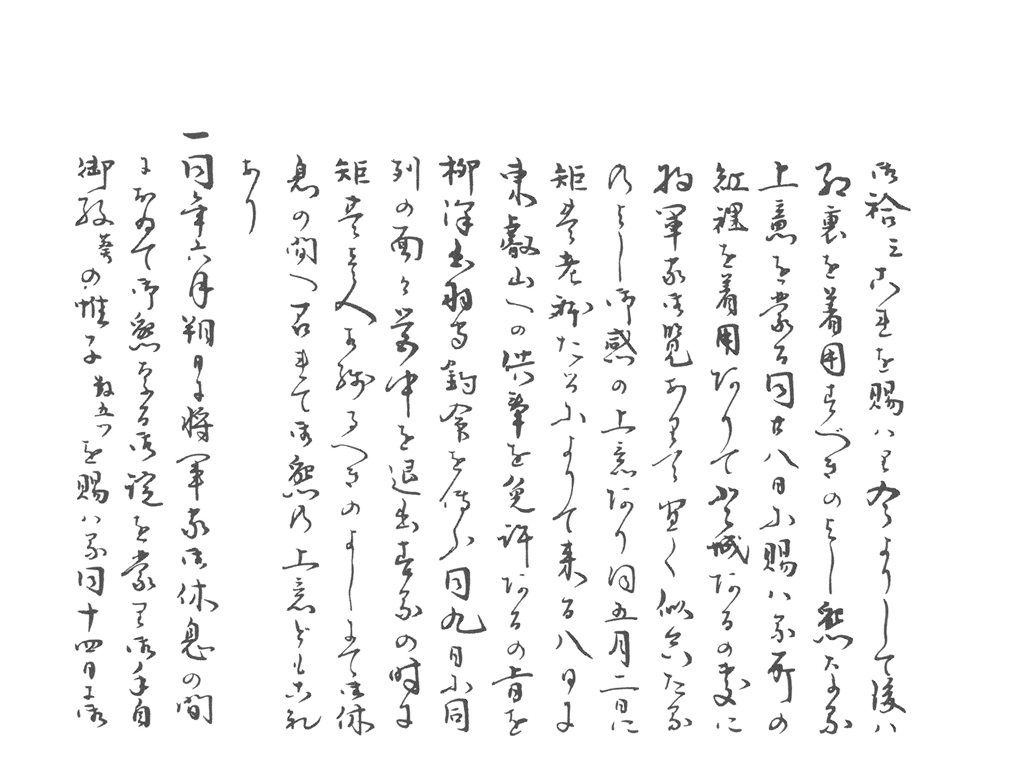 御袷三これを賜ハり今よりして後ハ
紅裏を着用すべきのよし懇なる
上意を蒙る同廿八日に賜ハる所の
紅裡を着用ありて登城あるの處に
将軍家御覧ありて宜く似合たる
のよし御感の上意あり同五月二日に
矩豊老衰たるによりて来る八日に
東叡山への供奉を免許あるの旨を
柳澤出羽守釣命を傳ふ同九日に同
列の面々營中を退出するの時に
矩豊壱人可残るへきのよしにて御休
息の間へ召れて御懇の上意どもこれ
あり
一同年六月朔日に将軍家御休息の間
におゐて御懇なる御諚を蒙り御手自
御紋葵の帷子数五つを賜ハる同十四日に御